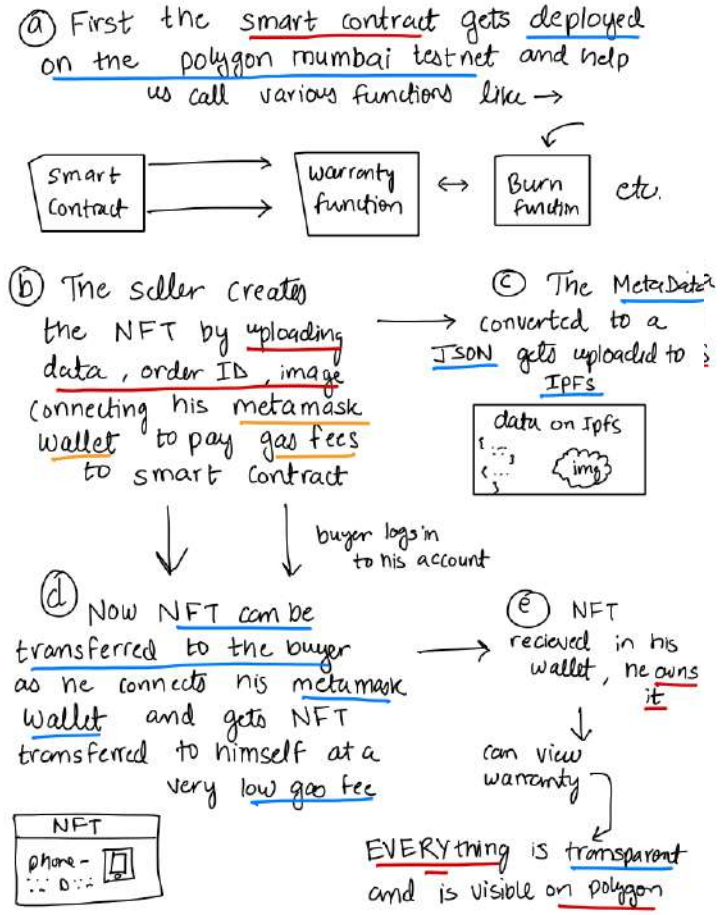 (a) First the smart contract gets deployed
on the polygon mumbai testnet and help
us call various functions like →
smart
contract
warranty
function
↔
Burn
function
etc.
(b) The seller creates
the NFT by uploading
data, order ID, image
connecting his metamask
wallet to pay gas fees
to smart contract
(c) The MetaData
converted to a
JSON gets uploaded to
IPFs
data on Ipfs
{
... }
{ ...
}
img
buyer logs in
to his account
(d) Now NFT can be
transferred to the buyer
as he connects his metamask
wallet and gets NFT
transferred to himself at a
very low gas fee
(e) NFT
recieved in his
wallet, he owns
it
can view
warranty
NFT
phone -
EVERYthing is transparent
and is visible on polygon